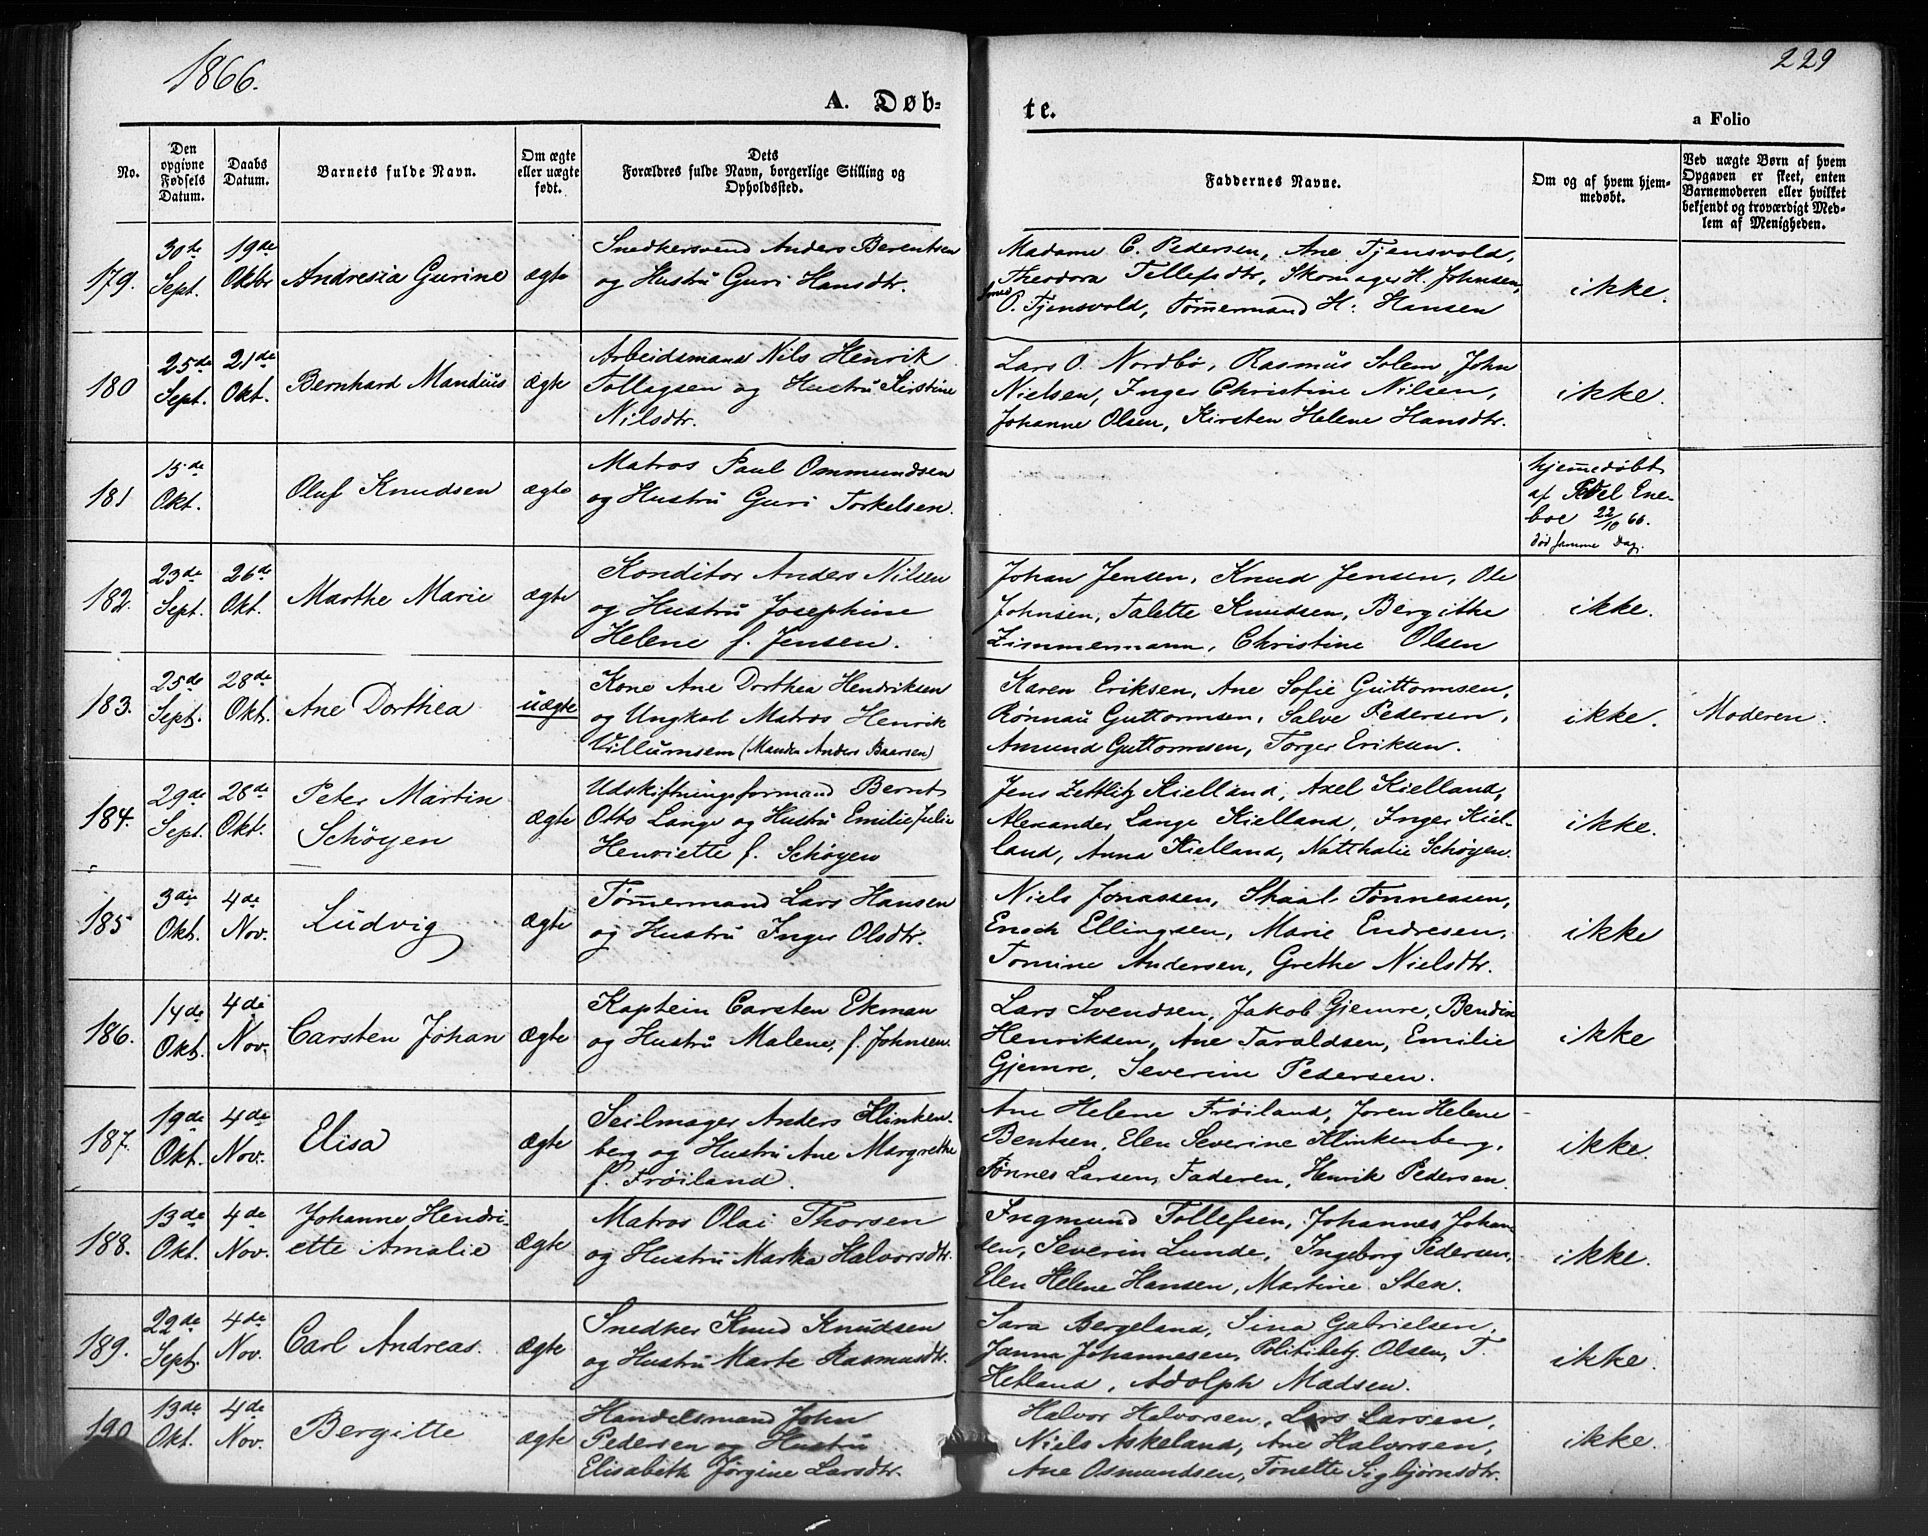 1866.
229
A. Døb-
te.
a Folio
No.
Den opgivne Fødsels Datum.
Daabs Datum.
Barnets fulde Navn.
Om ægte eller uægte født.
Dets
Forældres fulde Navn, borgerlige Stilling og
Opholdssted.
Faddernes Navne.
Om og af hvem hjem-
medøbt.
Ved uægte Børn af hvem
Opgaven er skeet, enten
Barnemoderen eller hvilket
bekjendt og troværdigt Med-
lem af Menigheden.
179.
30te Sept.
19de Oktbr
Andresia Gurine
ægte
Snedkersvend Anders Berentsen
og Hustru Guri Hansdtr.
Madame C. Pedersen, Ane Tjensvold,
Theodora Tellefsdtr, Skomager H. Johnsen,
Smed O. Tjensvold, Tømermand H. Hansen
ikke.
180
25de Sept.
21de Okt.
Bernhard Mandius
ægte
Arbeidsmand Nils Henrik
Tollagsen og Hustru Sistine
Nilsdtr.
Lars O. Nordbø, Rasmus Solem, John
Nielsen, Inger Christine Nilsen,
Johanne Olsen, Kirsten Helene Hansdtr.
ikke.
181
15de Okt.
Oluf Knudsen
ægte
Matros Paul Ommundsen
og Hustru Guri Torkelsen.
hjemedøbt
af Pedel Ene-
boe 22/10 66.
død samme Dag.
182.
23de Sept.
26de Okt.
Marthe Marie
ægte
Konditor Anders Nilsen
og Hustru Josephine
Helene f. Jensen.
Johan Jensen, Knud Jensen, Ole
Johnsen, Talette Knudsen, Bergithe
Zimmermann, Christine Olsen
ikke.
183.
25de Sept.
28de Okt.
Ane Dorthea
uægte
Kone Ane Dorthea Hendriksen
og Ungkarl Matros Henrik
Villumsen (Manden Anders Baarsen)
Karen Eriksen, Ane Sofie Guttormsen,
Rønnau Guttormsen, Salve Pedersen,
Amund Guttormsen, Torger Eriksen.
ikke.
Moderen.
184.
29de Sept.
28de Okt.
Peter Martin
Schøyen
ægte
Udskiftningsformand Bernt
Otto Lange og Hustru Emilie Julie
Henriette f. Schøyen
Jens Zettlitz Kielland, Axel Kielland,
Alexander Lange Kielland, Inger Kiel-
land, Anna Kielland, Natthalie Schøyen.
ikke.
185
3die Okt.
4de Nov.
Ludvig
ægte
Tømermand Lars Hansen
og Hustru Inger Olsdtr.
Niels Jonassen, Skaal Tønnessen,
Enoch Ellingsen, Marie Endresen,
Tomine Andersen, Grethe Nielsdtr.
ikke
186.
14de Okt.
4de Nov.
Carsten Johan
ægte
Kaptein Carsten Ekman
og Hustru Malene, f. Johnsen.
Lars Svendsen, Jakob Gjemre, Bendix
Henriksen, Ane Taraldsen, Emilie
Gjemre, Severine Pedersen.
ikke
187.
19de Okt.
4de Nov.
Elisa
ægte
Seilmager Anders Klinken-
berg og Hustru Ane Margrethe
f. Frøiland.
Ane Helene Frøiland, Joren Helene
Bentsen, Elen Severine Klinkenberg,
Tønnes Larsen, Faderen, Henrik Pedersen.
ikke.
188.
13de Okt.
4de Nov.
Johanne Hendri-
ette Amalie
ægte
Matros Olai Thorsen
og Hustru Martha Halvorsdtr.
Tollefsen, Johannes Johan
sen, Severin Lunde, Ingeborg Pedersen,
Elen Helene Hansen, Martine Sten.
ikke.
189.
22de Sept.
4de Nov.
Carl Andreas.
ægte
Snedker Knud Knudsen
og Hustru Marte Rasmusdtr.
Sara Bergeland, Sina Gabrielsen,
Janna Johannesen, Politibetj. Olsen, T.
Hetland, Adolph Madsen.
ikke.
190
13de Okt.
4de Nov.
Bergitte
ægte
Handelsmand John
Pedersen og Hustru
Elisabeth Jørgine Larsdtr.
Halvor Halvorsen, Lars Larsen,
Niels Askeland, Ane Halvorsen,
Ane Osmundsen, Tonette Sigbjørnsdtr.
ikke.